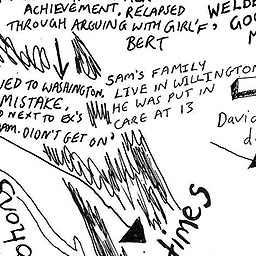 ACHIEVEMENT, RELAPSED
THROUGH ARGUING WITH GIRL'F'
BERT
WELDE
GOO
M
TO WASHINGTON,
MISTAKE,
NEXT TO EX'S
FAM. DIDN'T GET ON'
SAM'S FAMILY
LIVE IN WILLINGTON
HE WAS PUT IN
CARE AT 13
David
d
times